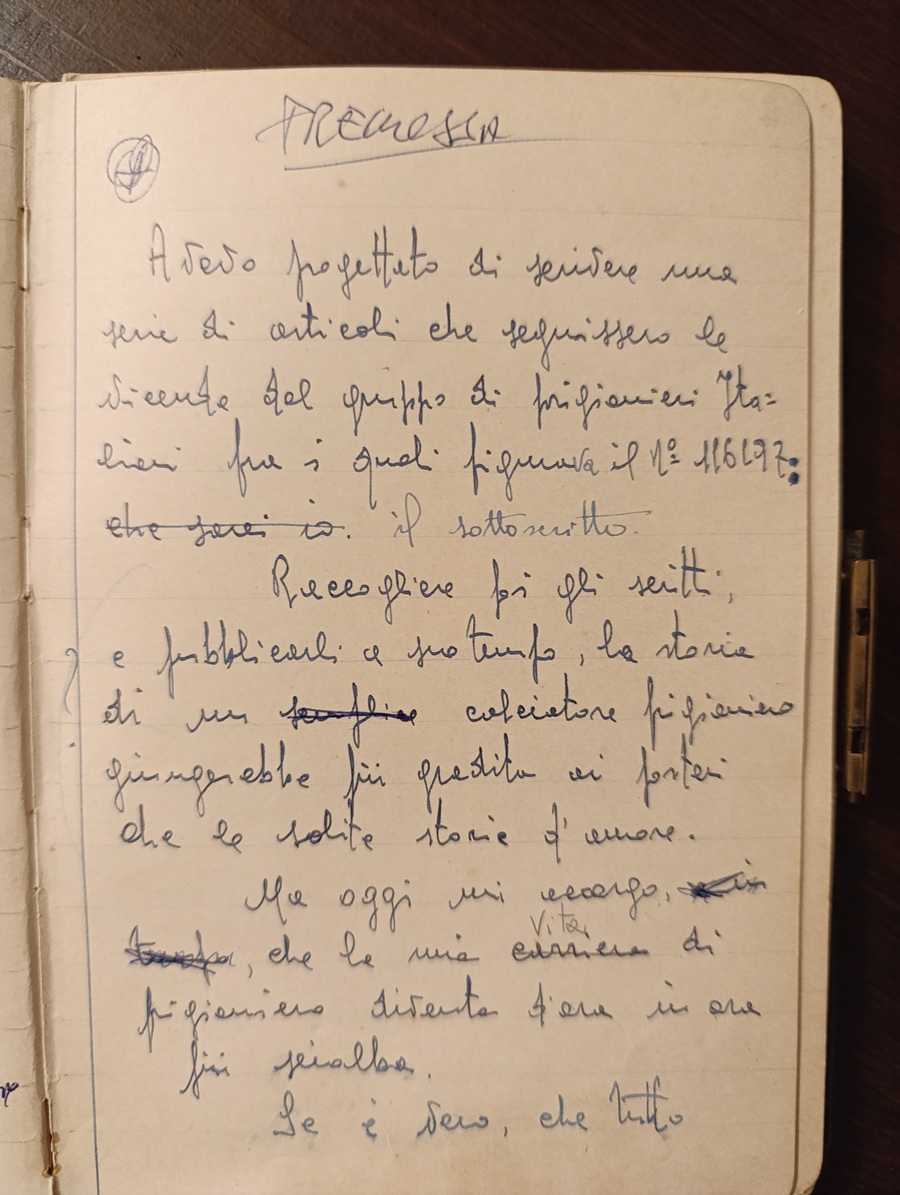 PREMESSA
Avevo progettato di scrivere una
serie di articoli che seguissero le
vicende del gruppo di prigionieri Ita=
liani fra i quali figurava il Nº 116197:
che sarei io. il sottoscritto.
Raccogliere poi gli scritti,
e pubblicarli a suo tempo, la storia
di un semplice calciatore prigioniero
giungerebbe più gradita ai posteri
che le solite storie d'amore.
Ma oggi mi accorgo, in
tempo, che la mia carriera vita di
prigioniero diventa d'ora in ora
più scialba.
Se è vero, che tutto